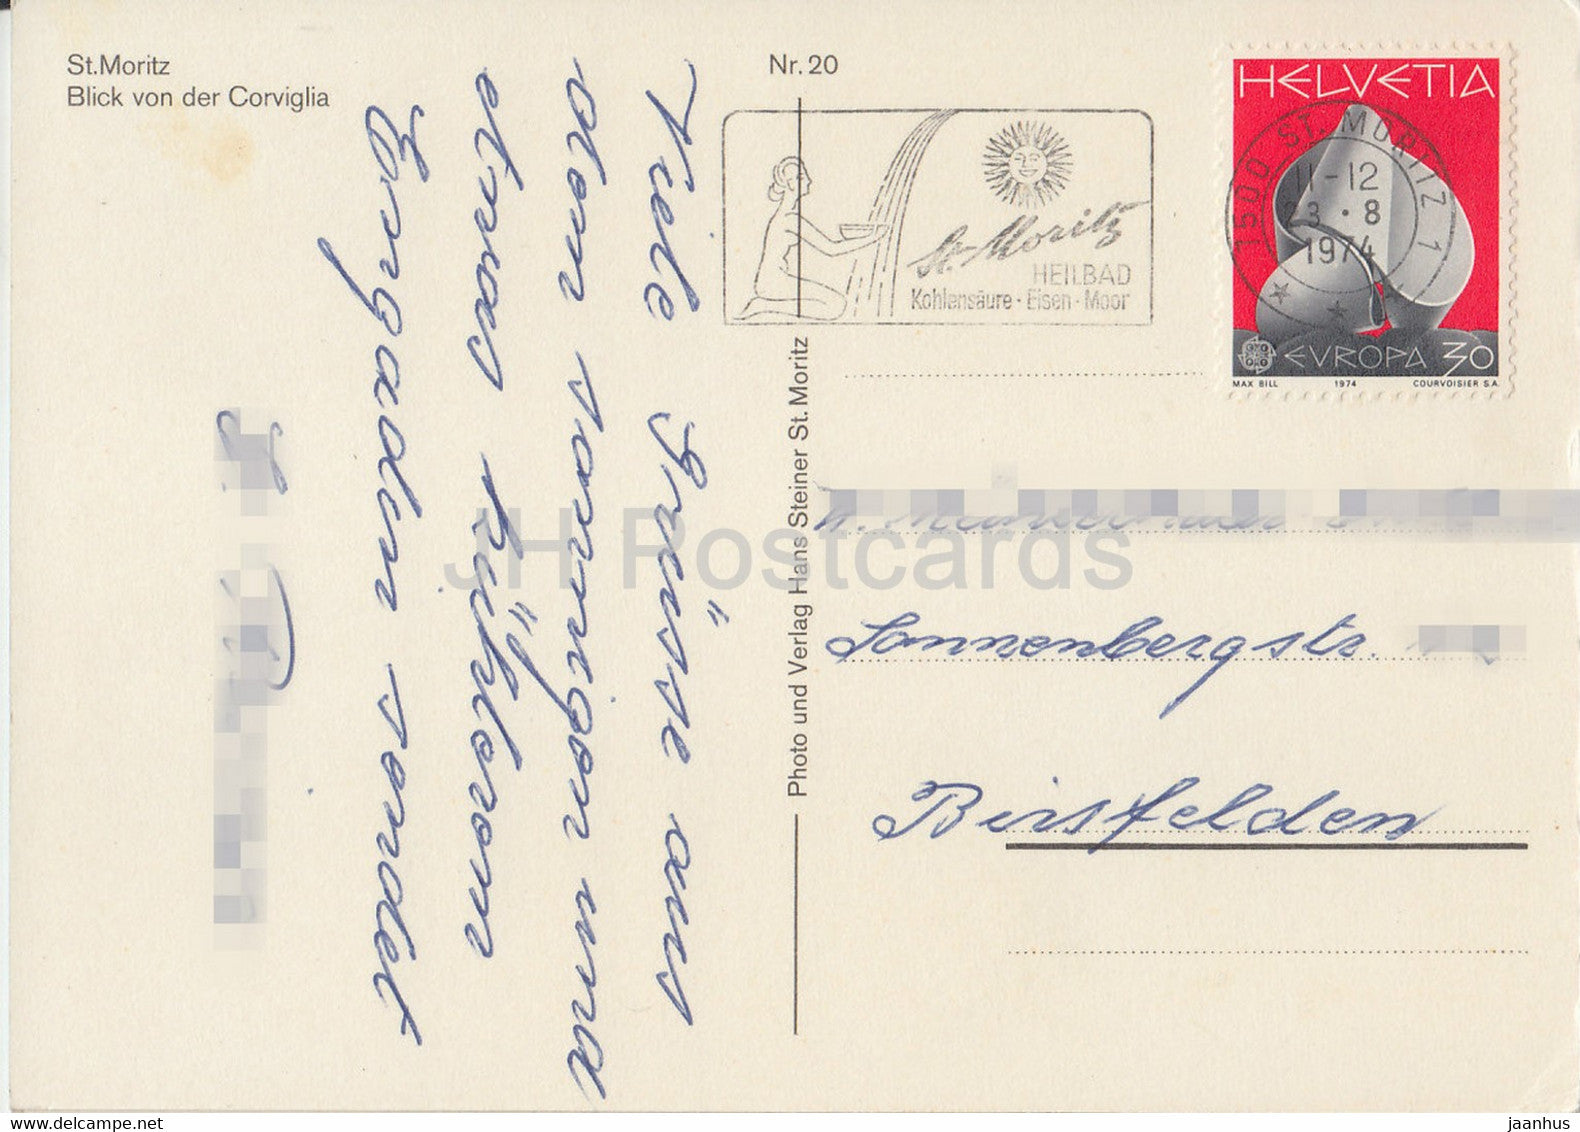 St.Moritz
Blick von der Corviglia
Nr. 20
Viele Grüsse aus
dem sonnigen und
etwas kühleren
Engadin sendet
Photo und Verlag Hans Steiner St. Moritz
St. Moritz
HEILBAD
Kohlensäure · Eisen · Moor
HELVETIA
7500 ST. MORITZ 1
11-12
23.8
1974
EVROPA 30
MAX BILL 1974 COURVOISIER S.A.
Sonnenbergstr.
Birsfelden
JH Postcards
www.delcampe.net
jaanhus